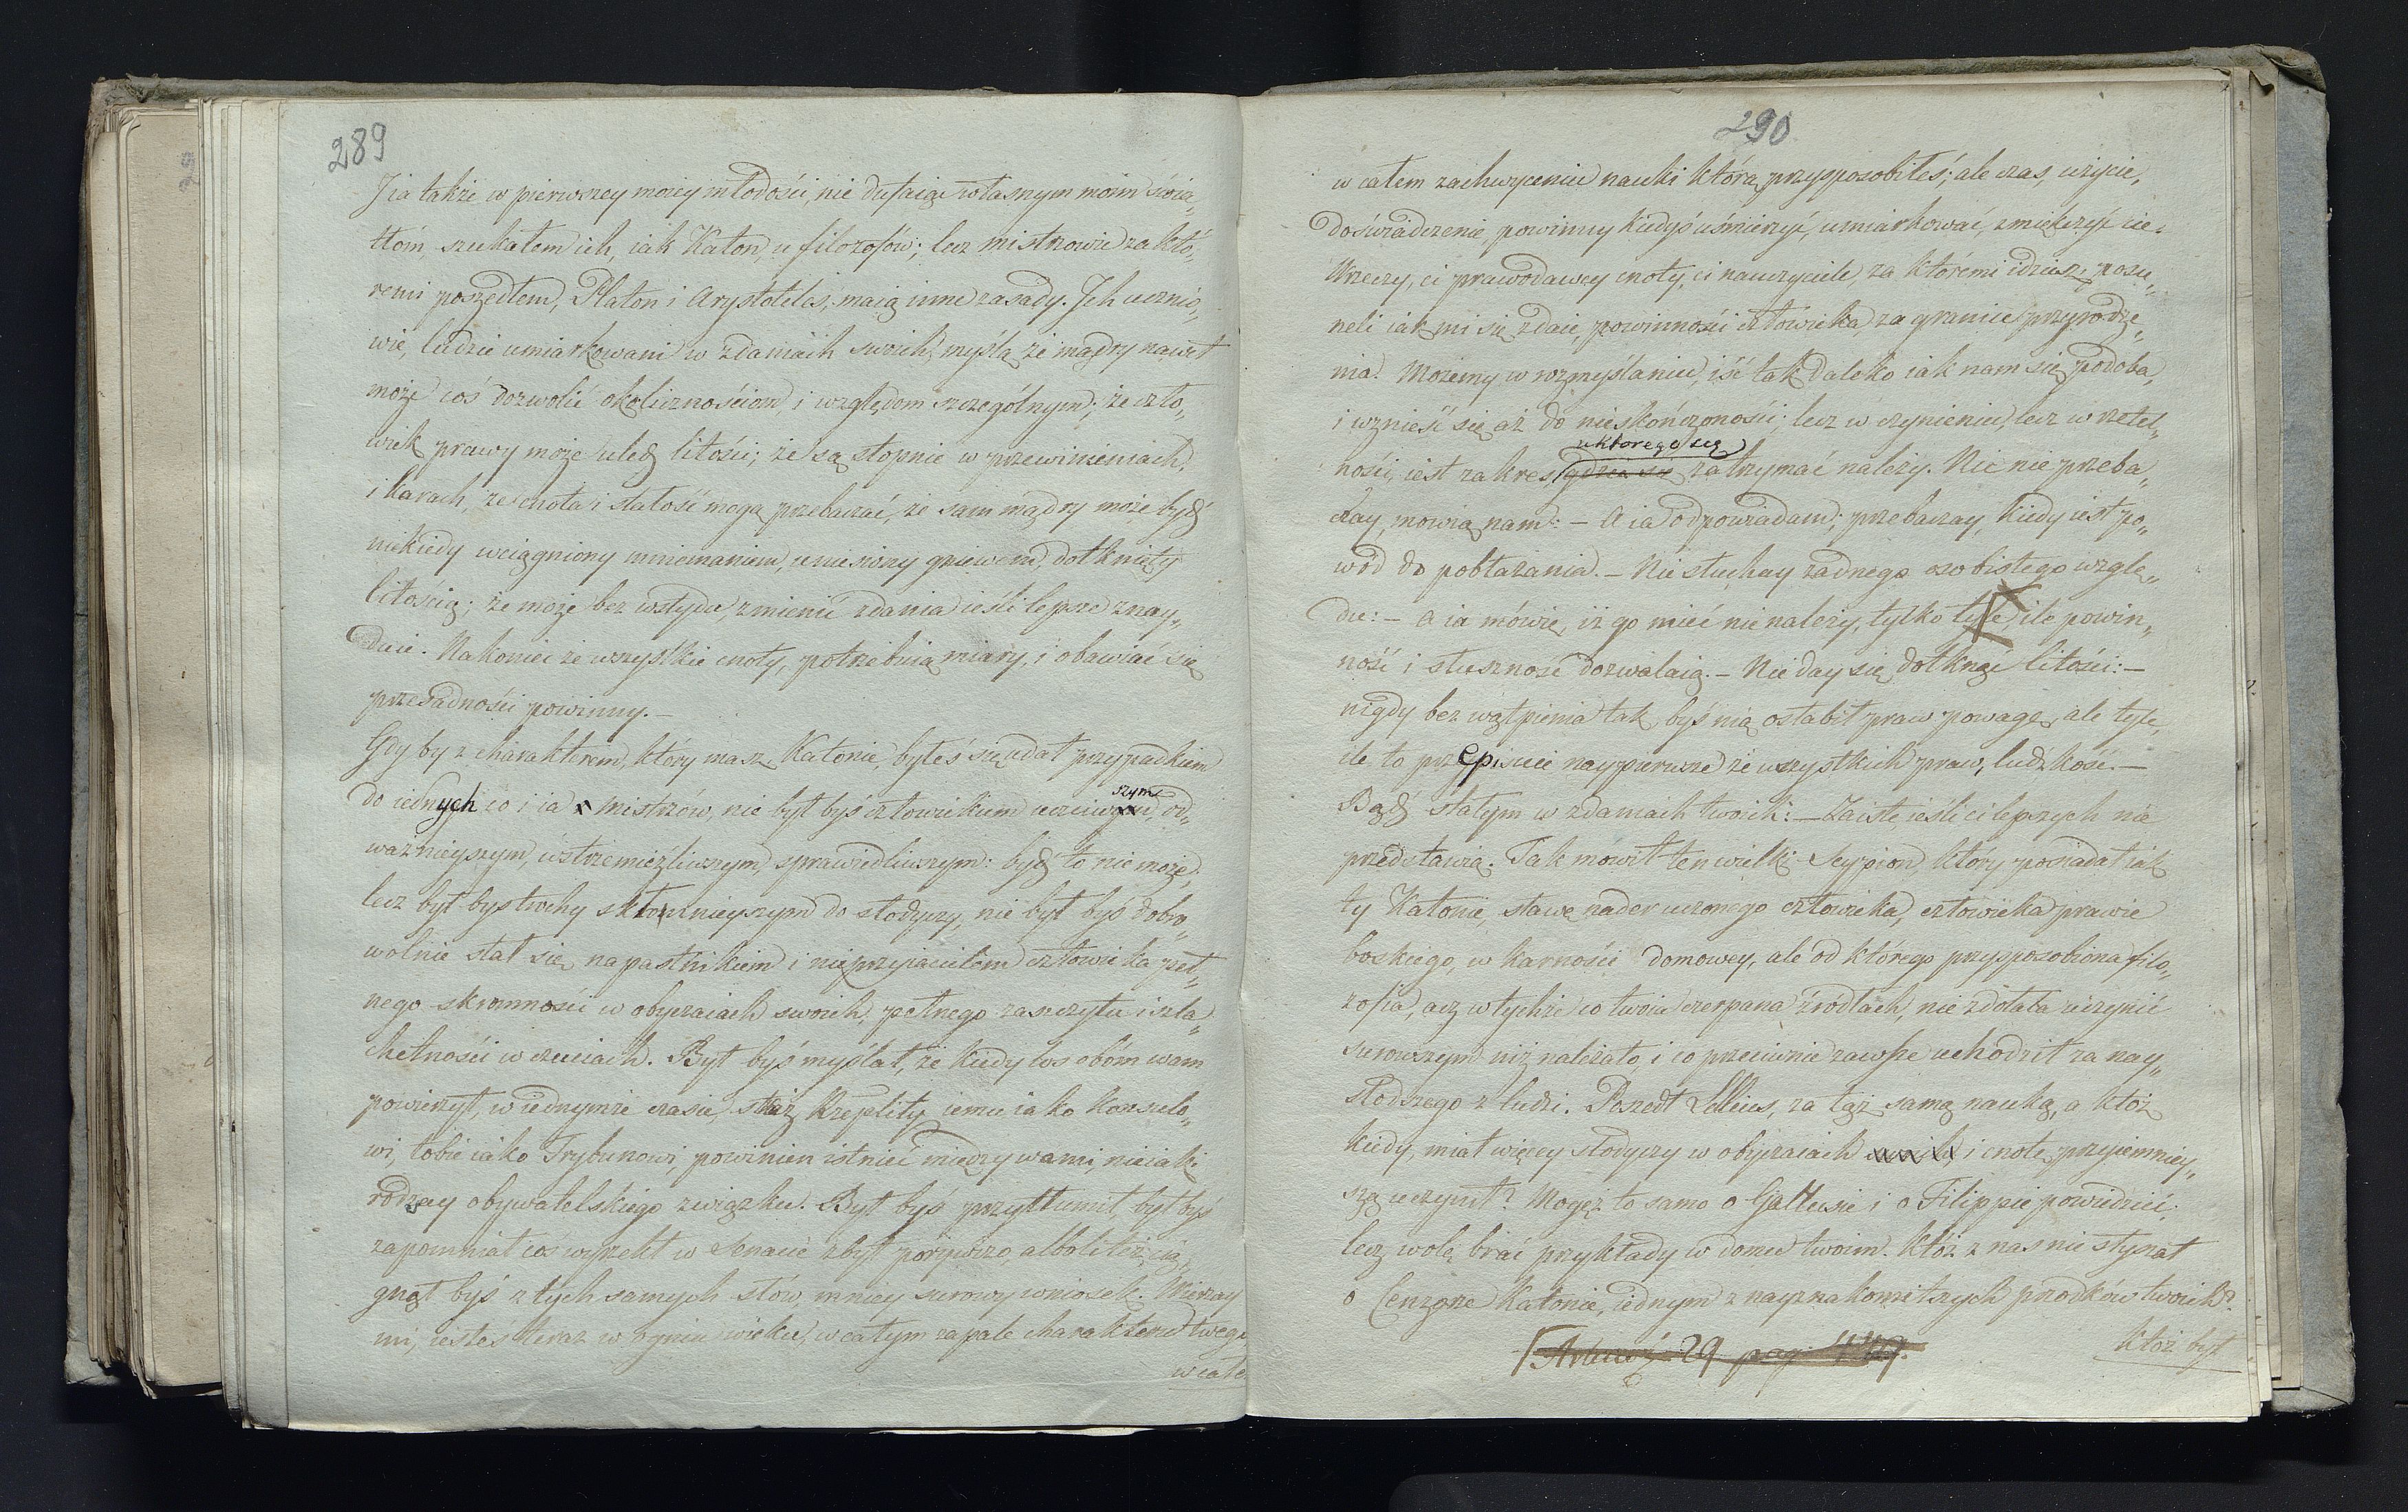 289
J ia także w pierwszey moiey młodości, nie dufaiąc własnym moim świa„
tłóm, szukałem ich, iak Katon, u filozofów; lecz mistrzowie za któ„
remi poszedłem, Platon i Arystoteles, maią inne zasady. Jch ucznio„
wie, ludzie umiarkowani w zdaniach swoich, myślą, że mądry nawet
może coś dozwolić okolicznościom, i względom szczególnym; że czło„
wiek prawy może uledz litości; że są stopnie w przewinieniach,
i karach, że cnota i stałość mogą przebaczać, że sam mądry może bydź
niekiedy wciągniony mniemaniem, uniesiony gniewem, dotknięty
litością; że może bez wstydu, zmienić zdania ieśli lepsze znay„
duie. Nakoniec że wszystkie cnoty, potrzebuią miary, i obawiać się
przesadności powinny. —
Gdy by z charakterem, który masz, Katonie, byłeś się udał przypadkiem
do iednych co i ia mistrzów, nie był byś człowiekiem uczciwszym, od„
ważnieyszym, wstrzemięźliwszym, sprawiedliwszym: bydź to nie może;
lecz był byś trochy skłonnieyszym do słodyczy, nie był byś dobro„
wolnie stał się napastnikiem i nieprzyiacielem człowieka peł„
nego skromności w obyczaiach swoich, pełnego zaszczytu i szla„
chetności w czuciach. Był byś myślał, że kiedy los obóm wam
powierzył, w iednymże czasie, straż Rzeplitey iemu iako Konsulo„
wi, tobie iako Trybunowi, powinien istnieć między wami, nieiaki
rodzay obywatelskiego związku. Był byś przytłumił, był byś
zapomniał coś wyrzekł w Senacie zbyt porywczo, albo li też cią„
gnął byś z tych samych słów, mniey surowy wniosek. Wierzay
mi, iesteś teraz w ogniu wieku, w całym zapale charakteru twego
w całe
290
w całem zachwyceniu nauki którą przysposobiłeś; ale czas, użycie,
doświadczenie, powinny kiedyś uśmierzyć, umiarkować, zmiękczyć cie.
Wrzeczy, ci prawodawcy cnoty, ci nauczyciele, za któremi idziesz, posu„
neli iak mi się zdaie, powinności człowieka, za granice przyrodze„
nia. Możemy w rozmyślaniu, iść tak daleko iak nam się podoba,
i wznieść się aż do nieskończoności; lecz w czynieniu, lecz w rzetel„
u którego się
ności, iest zakres gdzie się zatrzymać należy. Nic nie przeba„
czay, mowią nam: — A ia odpowiadam; przebaczay, kiedy iest po„
wód do pobłażania. — Nie słuchay żadnego osobistego wzglę„
du: — A ia mówię, iż go mieć nie należy, tylko tyle ile powin„
ność i słuszność dozwalaią. — Nie day się dotknąć litości: —
nigdy bez wątpienia tak, byś nią osłabił praw powagę, ale tyle,
ile to przepisuie naypierwsze ze wszystkich praw, ludzkość. —
Bądź stałym w zdaniach twoich: — Zaiste, ieśli ci lepszych nie
przedstawią. Tak mówił ten wielki Scypion, który posiadał iak
ty Katonie, sławę nader uczonego człowieka, człowieka prawie
boskiego, w karności domowey, ale od którego przysposobiona filo„
zofia, acz w tychże co twoia czerpana źródłach, nie zdołała uczynić
surowszym niż należało, i co przeciwnie zawsze uchodził za nay„
słodszego z ludzi. Poszedł Lelius, za tąż samą nauką, a któż
kiedy, miał więcey słodyczy w obyczaiach i cnotę przyiemniey„
szą uczynił? Mogęż to samo o Gallusie i o Filippie powiedzieć;
lecz wolę brać przykłady w domu twoim. Któż z nas nie słyszał
o Cenzorze Katonie, iednym z nayznakomitszych przodków twoich?
29 pag 449.
któż był